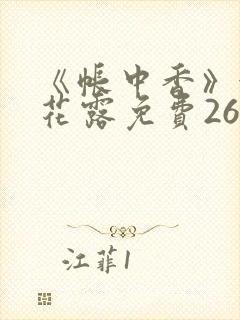 《帳中香》
花露免費26
江菲1